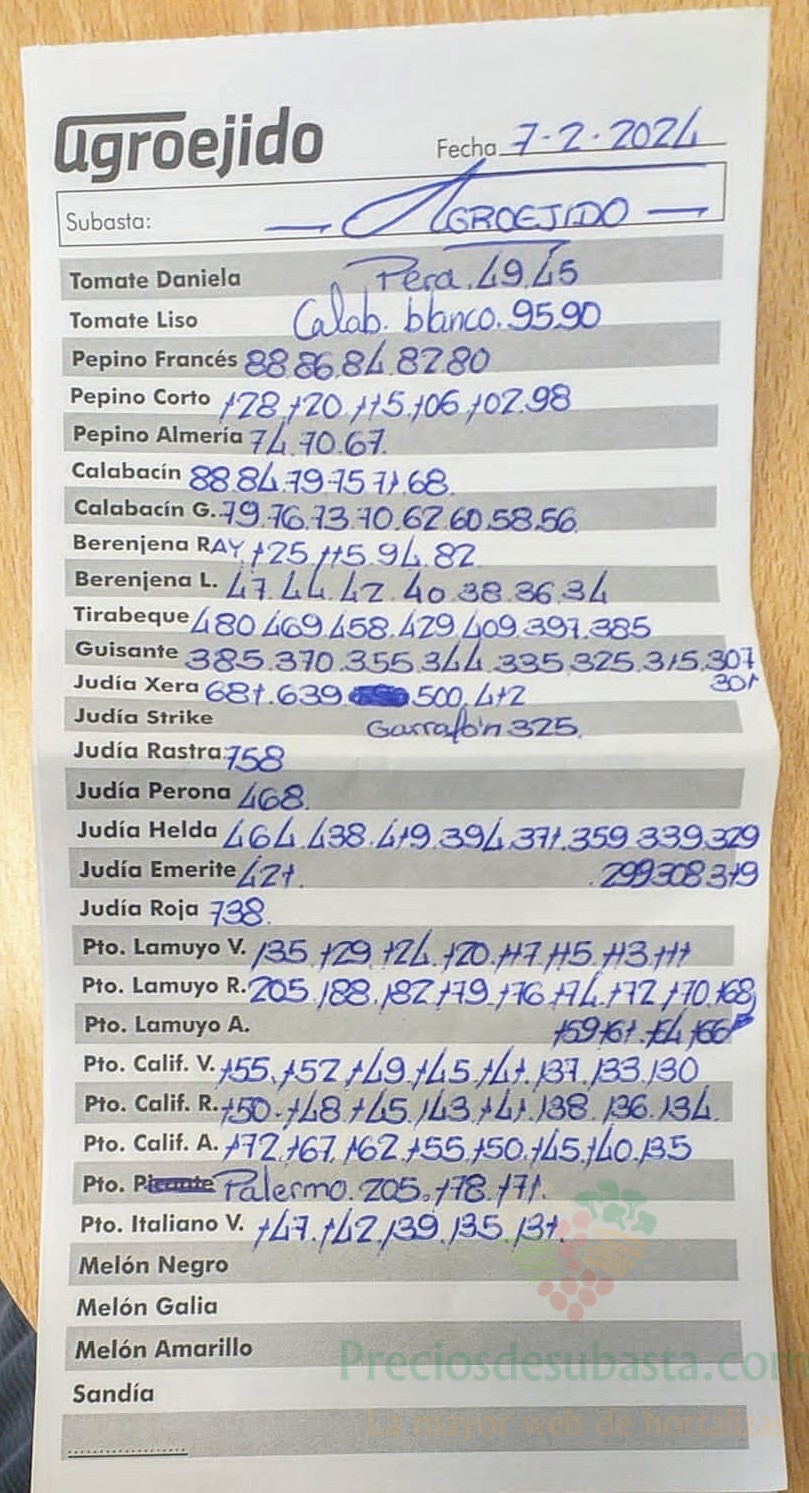 agroejido
Fecha 7-2-2024
Subasta: — AGROEJIDO —
Tomate Daniela Pera. 49.45
Tomate Liso Calab. blanco. 95.90
Pepino Francés 88.86.84.82.80
Pepino Corto 128.120.115.106.102.98
Pepino Almería 74.70.67.
Calabacín 88.84.79.75.71.68.
Calabacín G. 79.76.73.70.62.60.58.56
Berenjena RAY 125.115.94.82
Berenjena L. 47.44.42.40.38.36.34
Tirabeque 480.469.458.429.409.397.385
Guisante 385.370.355.344.335.325.315.307
301
Judía Xera 681.639 500.412
Judía Strike Garrafón 325.
Judía Rastra 758
Judía Perona 468.
Judía Helda 464.438.419.394.371.359.339.329
Judía Emerite 421. .299 308 319
Judía Roja 738.
Pto. Lamuyo V. 135.129.124.120.117.115.113.111
Pto. Lamuyo R. 205.188.182.179.176.174.172.170.168
Pto. Lamuyo A. 159.161.164.166
Pto. Calif. V. 155.152.149.145.141.137.133.130
Pto. Calif. R. 150.148.145.143.141.138.136.134.
Pto. Calif. A. 172.167.162.155.150.145.140.135
Pto. Picante Palermo. 205.178.171.
Pto. Italiano V. 147.142.139.135.131.
Melón Negro
Melón Galia
Melón Amarillo
Preciosdesubasta.com
Sandía
La mayor web de hortalizas